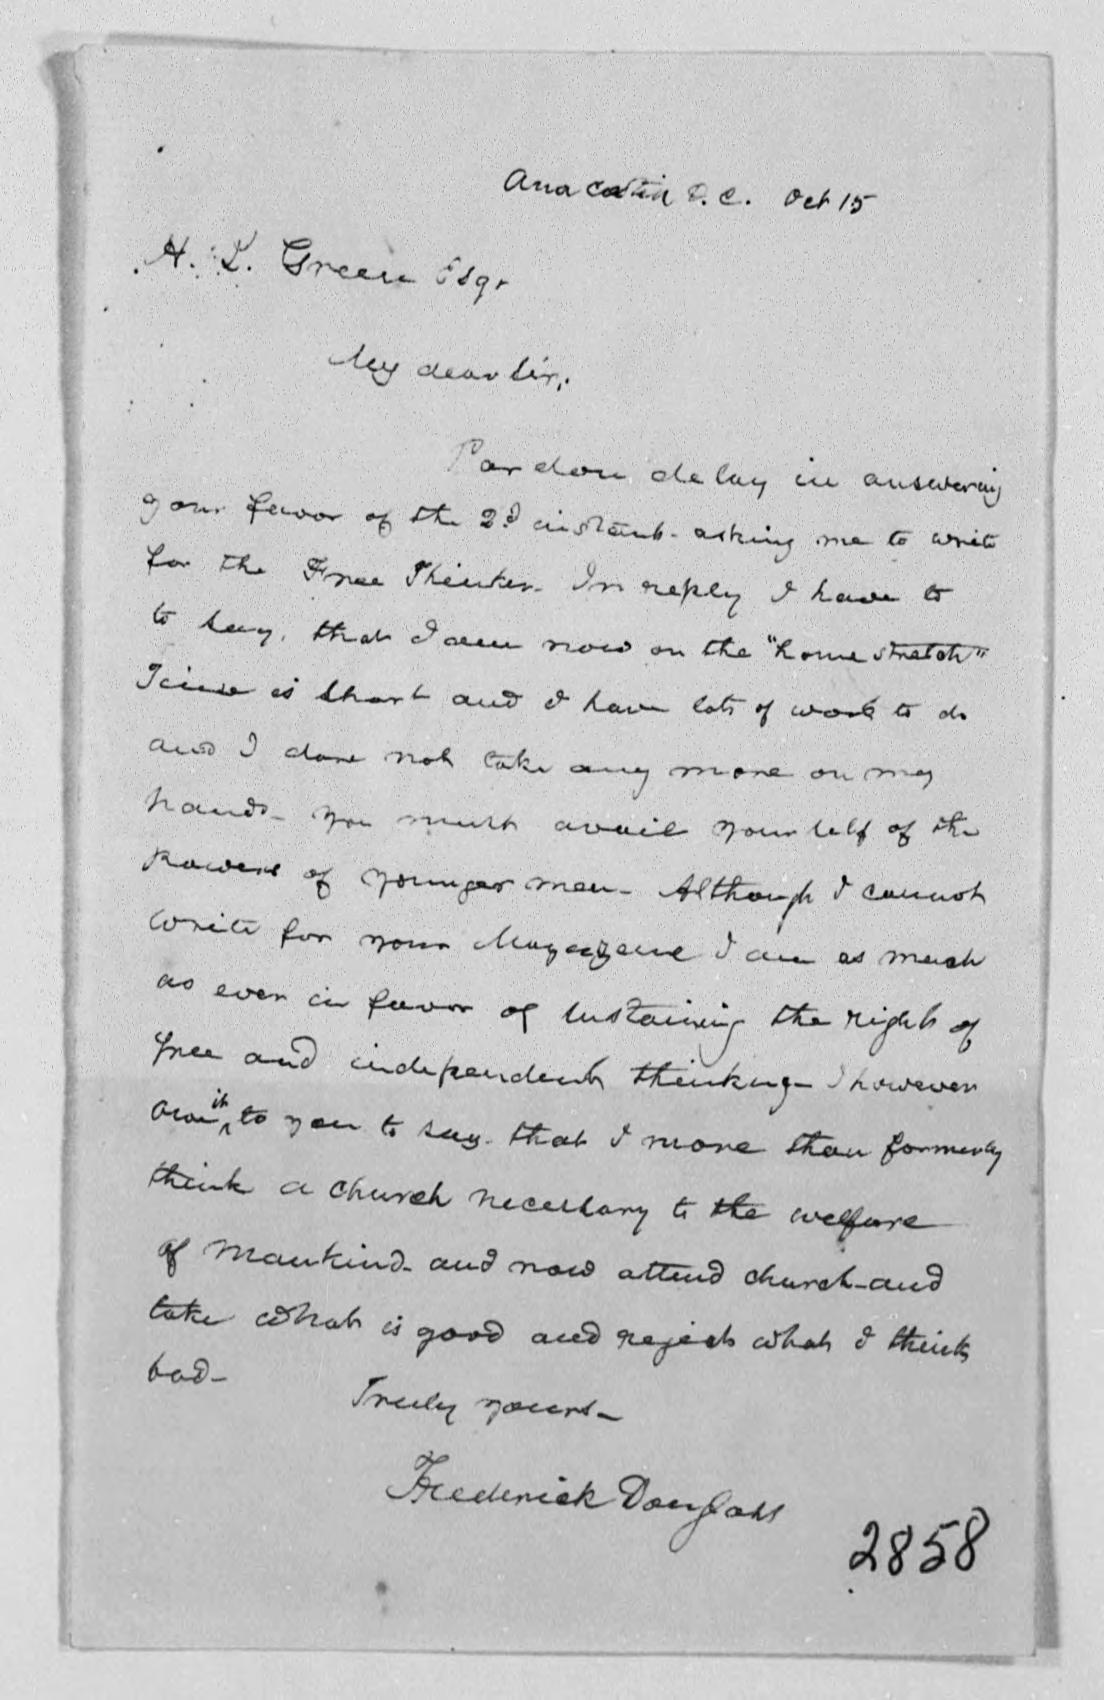 Anacostia D.C. Oct 15
H. L. Green Esqr
My dear Sir,
Pardon delay in answering
your favor of the 2d instant - asking me to write
for the Free Thinker - In reply I have to
to say, that I am now on the "home stretch"
Time is short and I have lots of work to do
and I dare not take any more on my
hands - you must avail yourself of the
powers of younger men - Although I cannot
write for your Magazene I am as much
as ever in favor of sustaining the right of
free and independent thinking - I however
owe it to you to say - that I more than formerly
think a church necessary to the welfare
of mankind - and now attend church - and
take what is good and reject what I think
bad -
Truly yours -
Frederick Douglass
2858